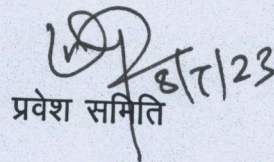 8/7/23
प्रवेश समिति